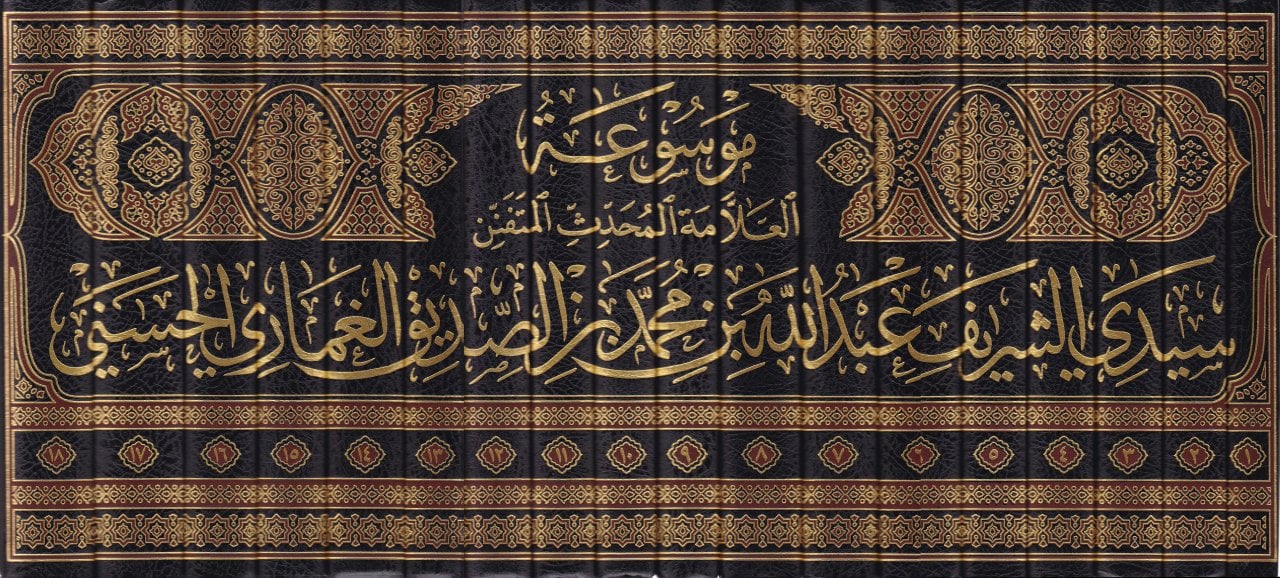 مَوْسُوْعَةُ
العَلَّامَة المُحَدِّثِ المتَفَنِّن
سيِّدِي الشريف عَبْدُ اللَّه بن مُحمَّد بن الصِّدِّيق الغمَارِي الحَسَني
١ ٢ ٣ ٤ ٥ ٦ ٧ ٨ ٩ ١٠ ١١ ١٢ ١٣ ١٤ ١٥ ١٦ ١٧ ١٨